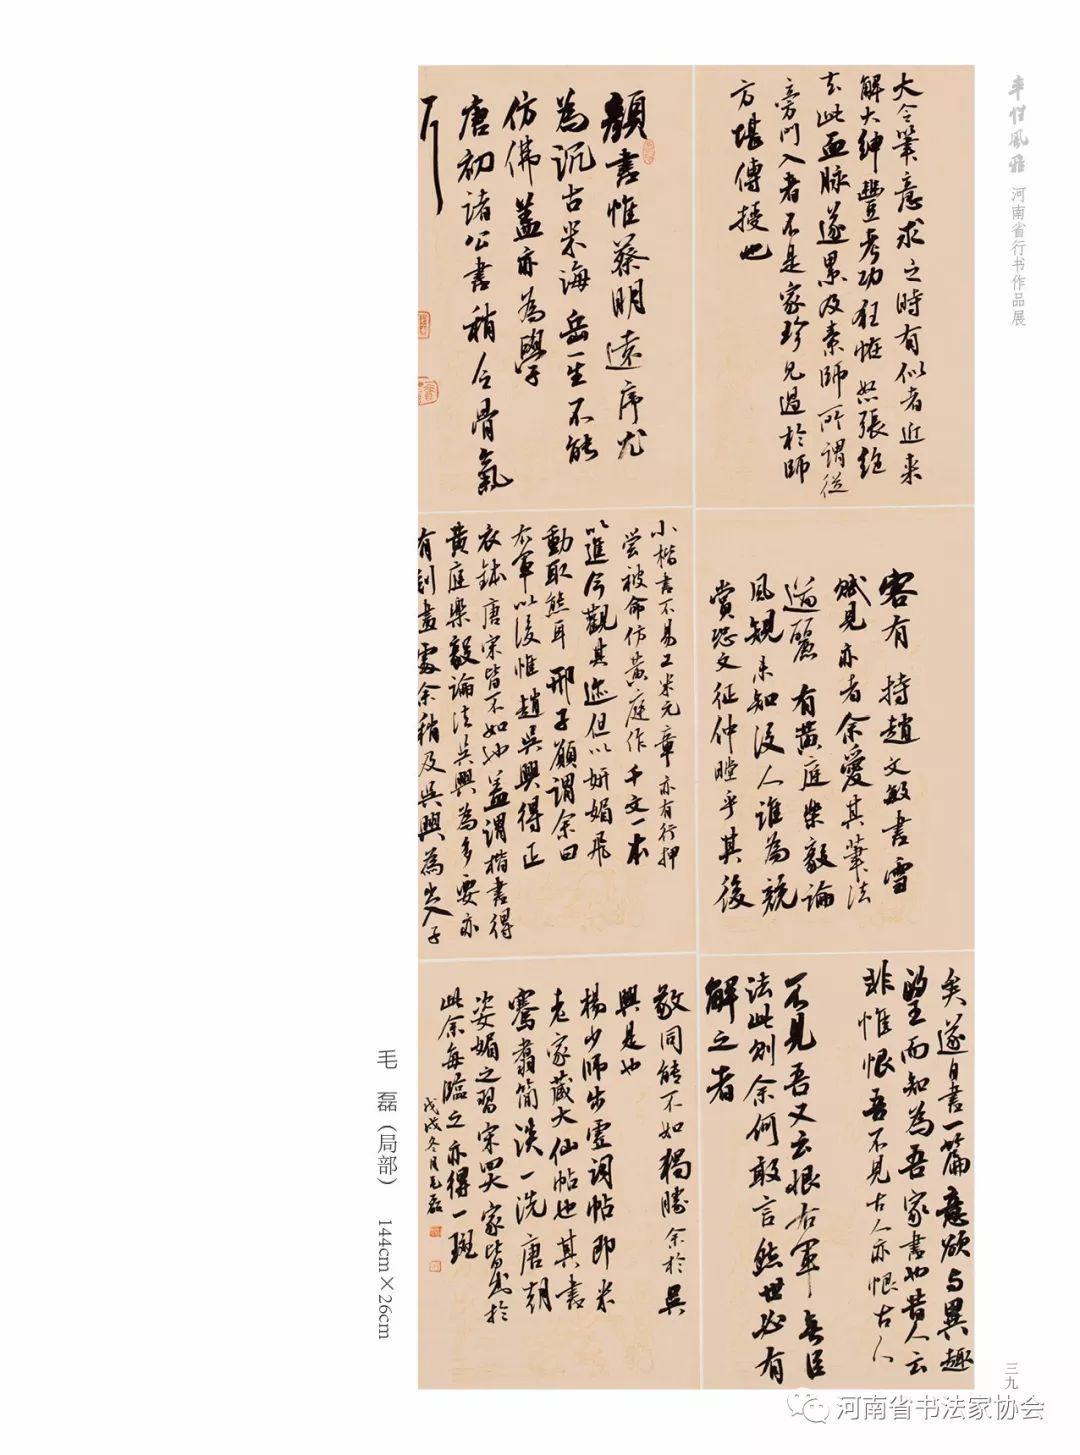 率性风雅 河南省行书作品展
大令筆意求之時有似者近来
解大紳豐考功狂怪怒張絕
去此血脉遂累及素師所謂從
旁門入者不是家珍見過於師
方堪傳授也
顏書惟蔡明遠序尤
為沉古米海岳一生不能
仿佛蓋亦為學
唐初諸公書稍乏骨氣
耳
客有持趙文敏書雪
賦見示者余愛其筆法
遒麗有黃庭樂毅論
風規未知後人誰為競
賞恐文征仲瞠乎其後
小楷書不易工米元章亦有行押
嘗被命仿黃庭作千文一本
以進今觀其迹但以妍媚飛
動取態耳邢子願謂余曰
右軍以後惟趙吳興得正
衣鉢唐宋皆不如也蓋謂楷書得
黃庭樂毅論法吳興為多要亦
有刻畫處余稍及吳興為出入子
矣遂自書一篇意欲与異趣
望而知為吾家書也昔人云
非惟恨吾不見古人亦恨古人
不見吾又云恨右軍無臣
法此則余何敢言然世必有
解之者
敬同能不如獨勝余於吳
興是也
楊少師步虛詞帖即米
老家藏大仙帖也其書
騫翥簡淡一洗唐朝
姿媚之習宋四大家皆出於
此余每臨之亦得一斑
戊戌冬月毛磊
毛 磊（局部） 144cm×26cm
三九
河南省书法家协会